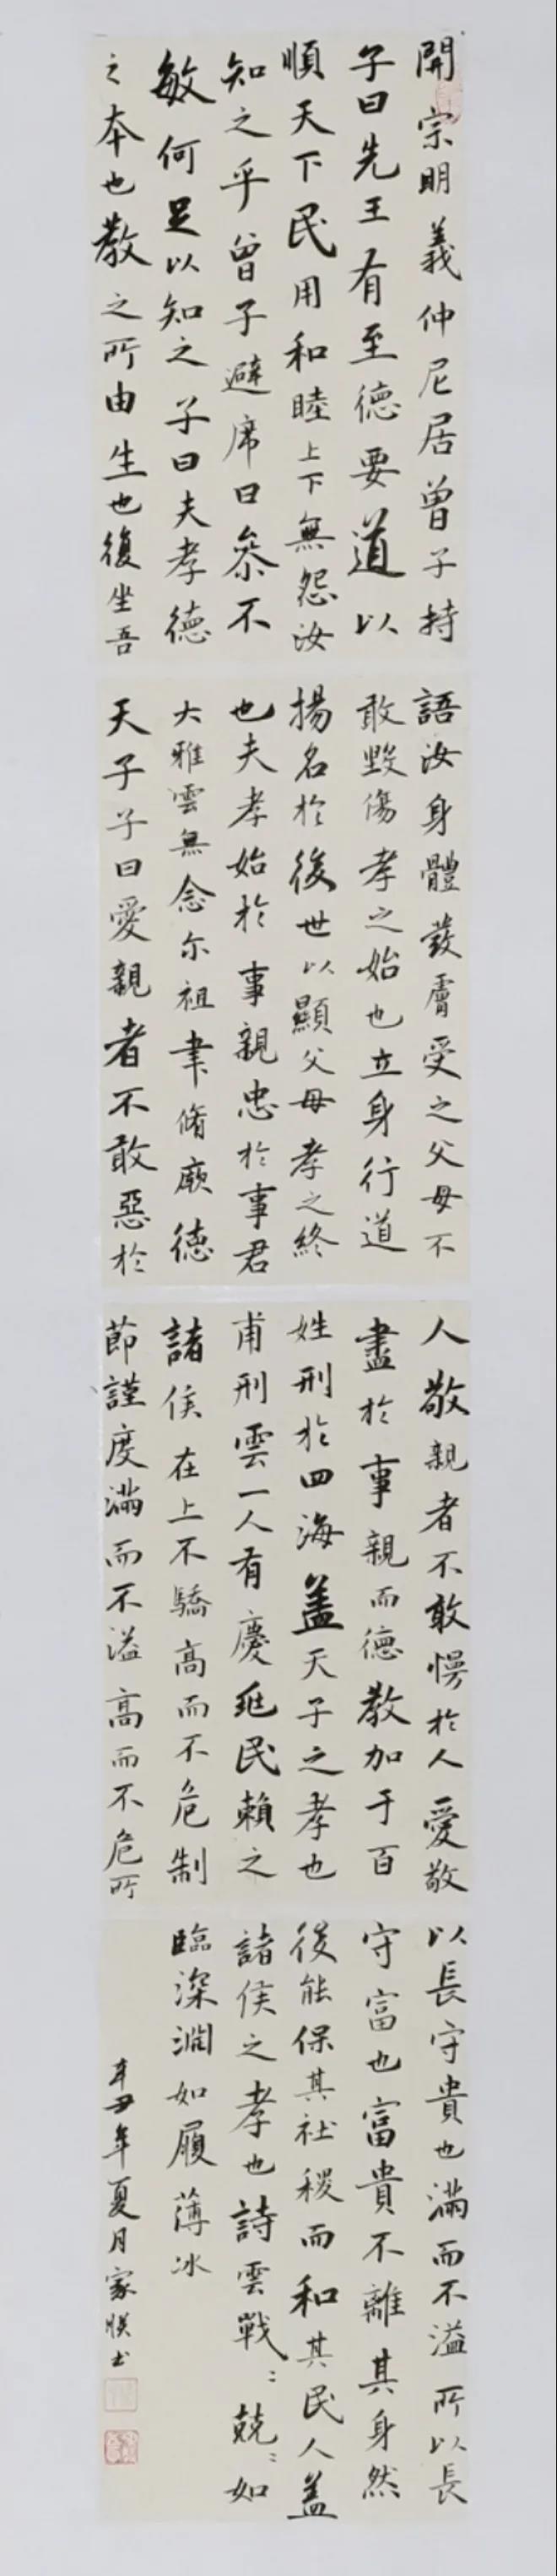 開宗明義仲尼居曾子持
子曰先王有至德要道以
順天下民用和睦上下無怨汝
知之乎曾子避席曰參不
敏何足以知之子曰夫孝德
之本也教之所由生也復坐吾
語汝身體發膚受之父母不
敢毀傷孝之始也立身行道
揚名於後世以顯父母孝之終
也夫孝始於事親忠於事君
大雅雲無念尔祖聿脩厥德
天子子曰愛親者不敢惡於
人敬親者不敢慢於人愛敬
盡於事親而德教加于百
姓刑於四海盖天子之孝也
甫刑雲一人有慶兆民賴之
諸侯在上不驕高而不危制
節謹度滿而不溢高而不危所
以長守貴也滿而不溢所以長
守富也富貴不離其身然
後能保其社稷而和其民人盖
諸侯之孝也詩雲戰〻兢〻如
臨深淵如履薄冰
辛丑年夏月家書